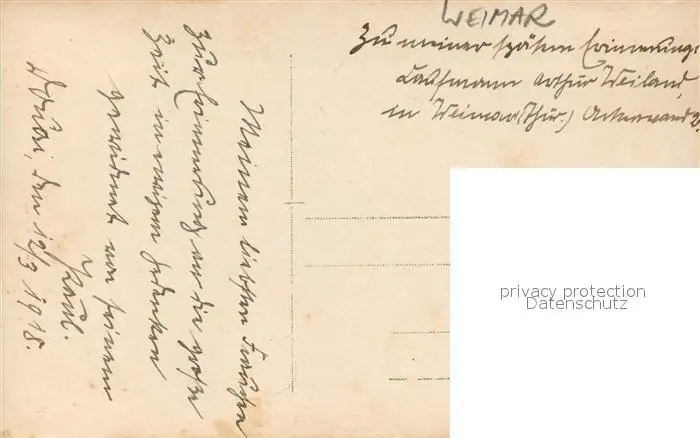 WEIMAR
Zu meiner späten Erinnerung:
Kaufmann Arthur Weiland,
in Weimar (Thür.) Ackerwand 2
Meinem liebsten Frauchen
zur Erinnerung an die große
Zeit in ewigem Gedenken
gewidmet von seinem
Paul.
Douai, den 12/3 1918.
privacy protection
Datenschutz